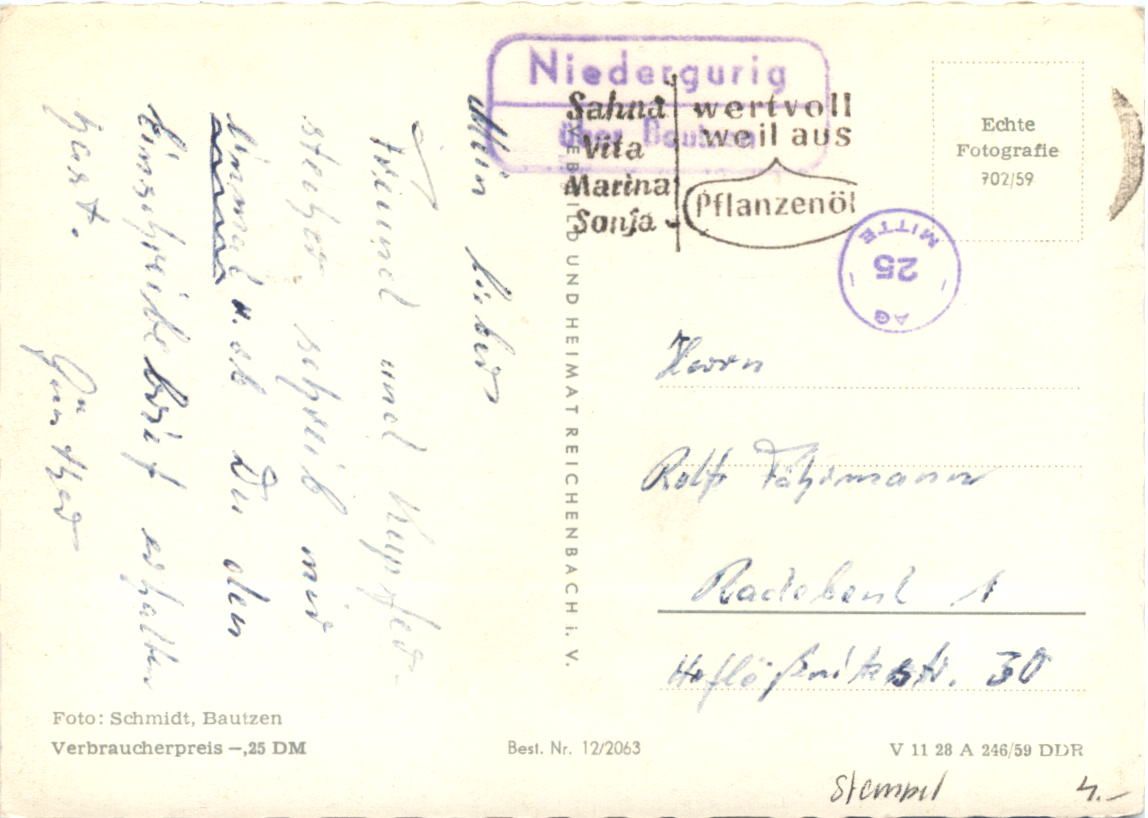 Mein lieber
Freund und Kupfer-
stecher schreib mir
einmal u. ob Du den
Einschreibebrief erhalten
hast.
Günther
VEB BILD UND HEIMAT REICHENBACH i. V.
Niedergurig
über Bautzen
Sahna
Vita
Marina
Sonja
wertvoll
weil aus
Pflanzenöl
Echte
Fotografie
702/59
MITTE
25
AG
Herrn
Rolf
Radebeul 1
str. 30
Foto: Schmidt, Bautzen
Verbraucherpreis –,25 DM
Best. Nr. 12/2063
V 11 28 A 246/59 DDR
Stempel 4.–